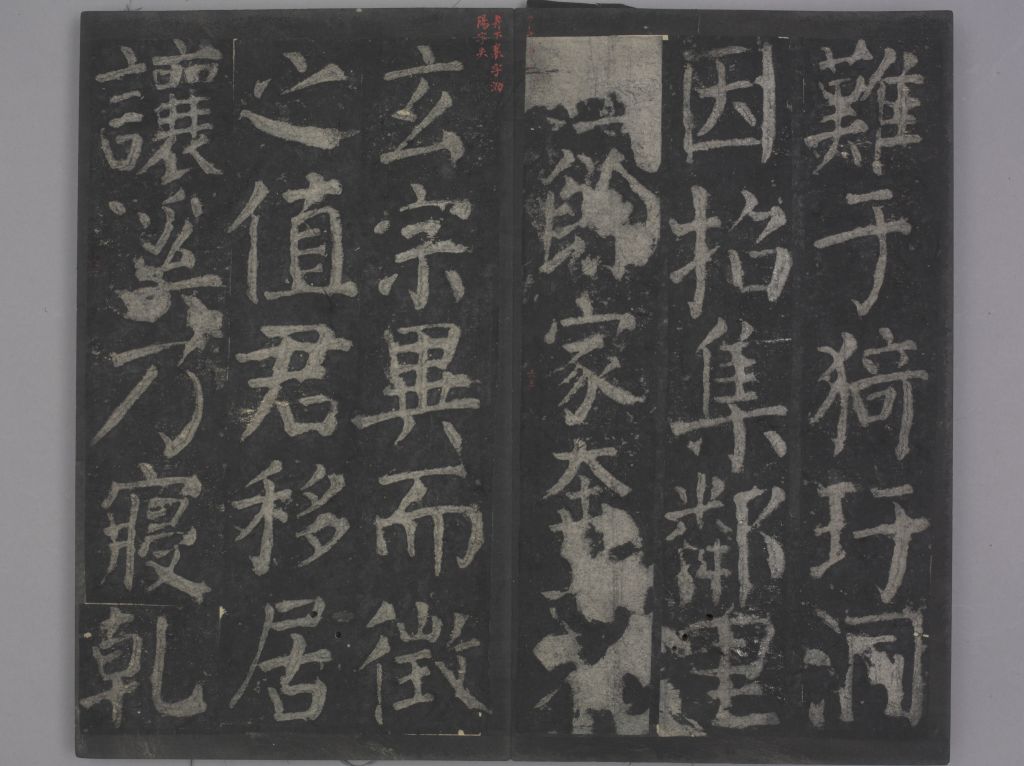 難于猗玗洞
因招集鄰里
餘家奔
玄宗異而徵
之值君移居
讓溪乃寢乾